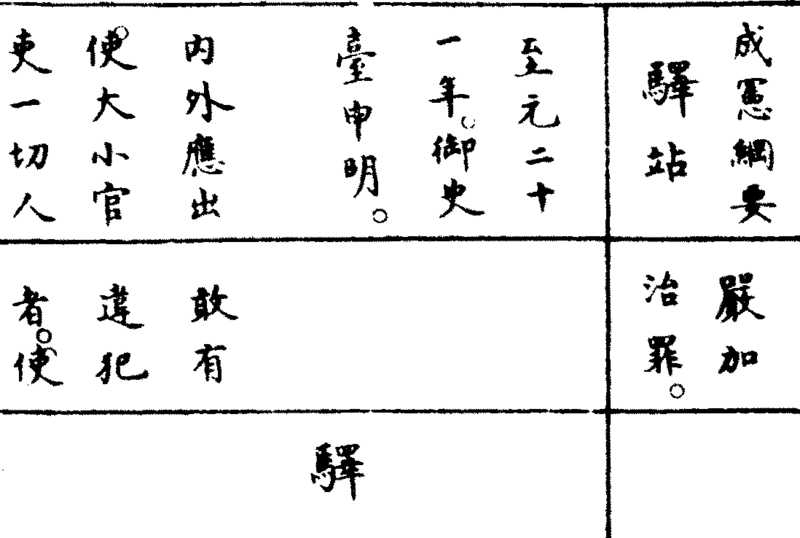 成憲綱要
驛站
至元二十
一年。御史
臺申明。
内外應出
使。大小官
吏一切人
嚴加
治罪。
敢有
違犯
者。使
驛